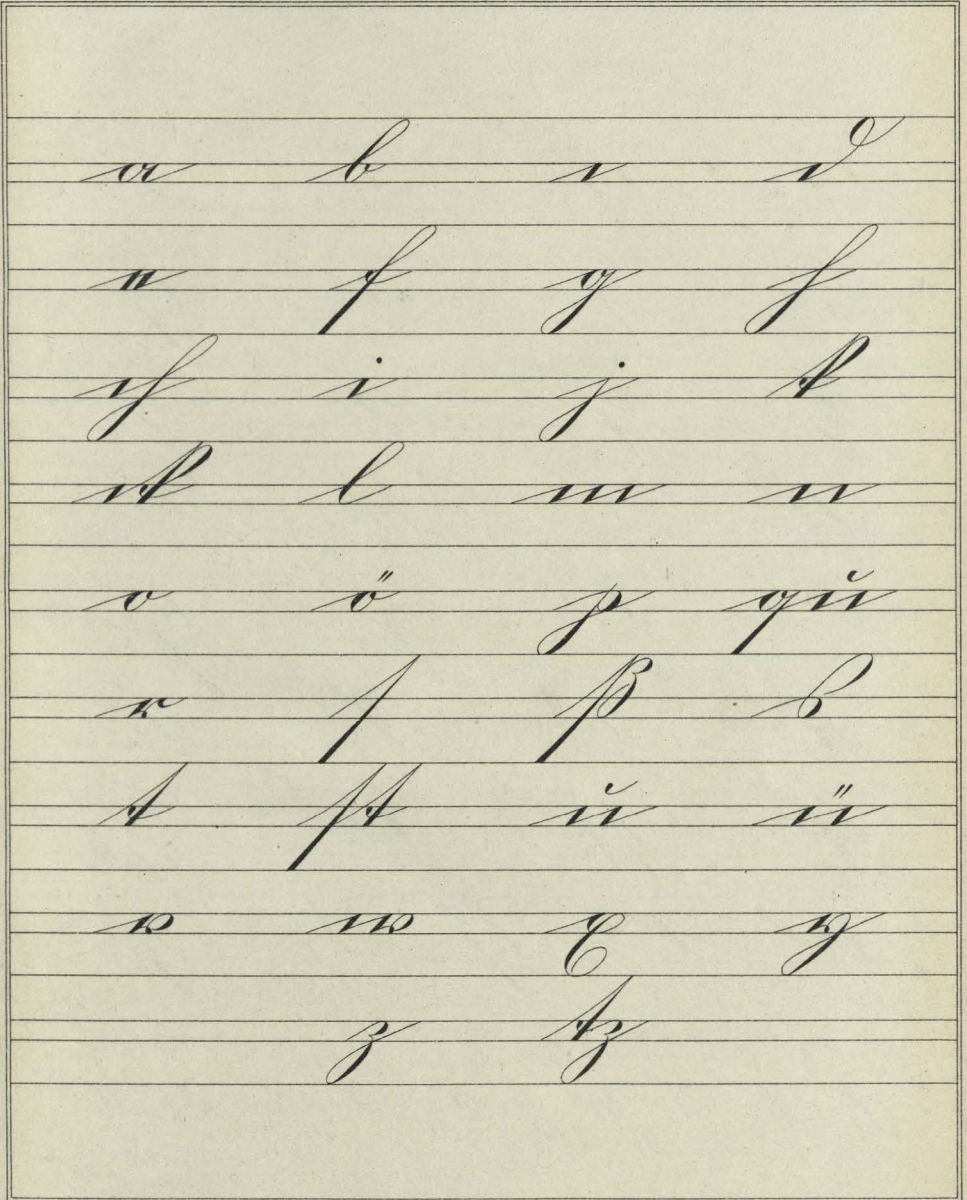 a b c d
e f g h
ch i j k
ck l m n
o ö p qu
r ſ ß s
t ſt u ü
v w x y
z tz